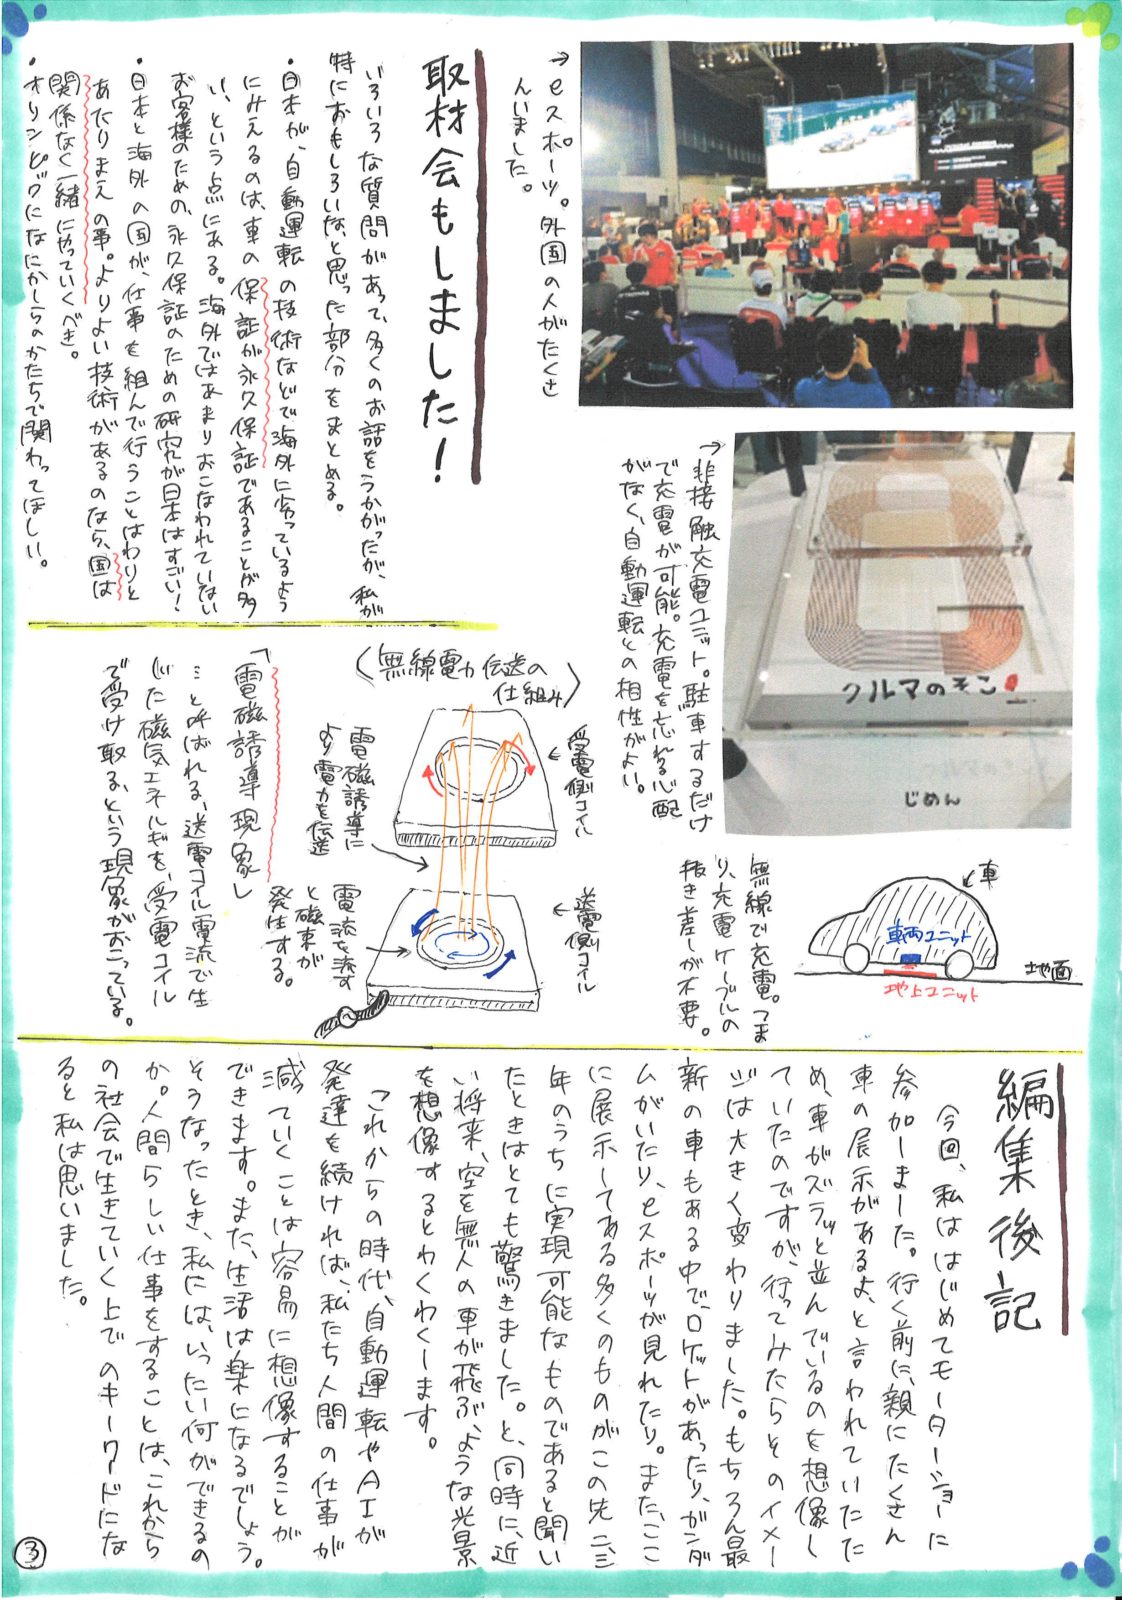 →eスポーツ。外国の人がたくさ
んいました。
取材会もしました!
いろいろな質問があって、多くのお話をうかがったが、私が
特におもしろいなと思った部分をまとめる。
・日本が、自動運転の技術などで海外に劣っているよう
にみえるのは、車の保証が永久保証であることが多
い、という点にある。海外ではあまりおこなわれていない
お客様のための、永久保証のための研究が日本はすごい!
・日本と海外の国が、仕事を組んで行うことはわりと
あたりまえの事。よりよい技術があるのなら、国は
関係なく一緒にやっていくべき。
・オリンピックになにかしらのかたちで関わってほしい。
→非接触充電ユニット。駐車するだけ
で充電が可能。充電を忘れる心配
がなく、自動運転との相性がよい。
クルマのそこ
じめん
無線で充電。つま
り、充電ケーブルの
抜き差しが不要。
←車
車両ユニット
地面
地上ユニット
〈無線電力伝送の
仕組み〉
←受電側コイル
電磁誘導に
より電力を伝送
←送電側コイル
電流を流す
と磁束が
発生する。
「電磁誘導現象」
…と呼ばれる、送電コイル電流で生
じた磁気エネルギを、受電コイル
で受け取る、という現象がおこっている。
編集後記
今回、私ははじめてモーターショーに
参加しました。行く前に、親にたくさん
車の展示があるよ、と言われていたた
め、車がズラッと並んでいるのを想像し
ていたのですが、行ってみたらそのイメー
ジは大きく変わりました。もちろん最
新の車もある中で、ロケットがあったり、ガンダ
ムがいたり、eスポーツが見れたり。また、ここ
に展示してある多くのものがこの先二、三
年のうちに実現可能なものであると聞い
たときはとても驚きました。と、同時に、近
い将来、空を無人の車が飛ぶ、ような光景
を想像するとわくわくします。
これからの時代、自動運転やAIが
発達を続ければ、私たち人間の仕事が
減っていくことは容易に想像することが
できます。また、生活は楽になるでしょう。
そうなったとき、私には、いったい何ができるの
か。人間らしい仕事をすることは、これから
の社会で生きていく上でのキーワードにな
ると私は思いました。
③